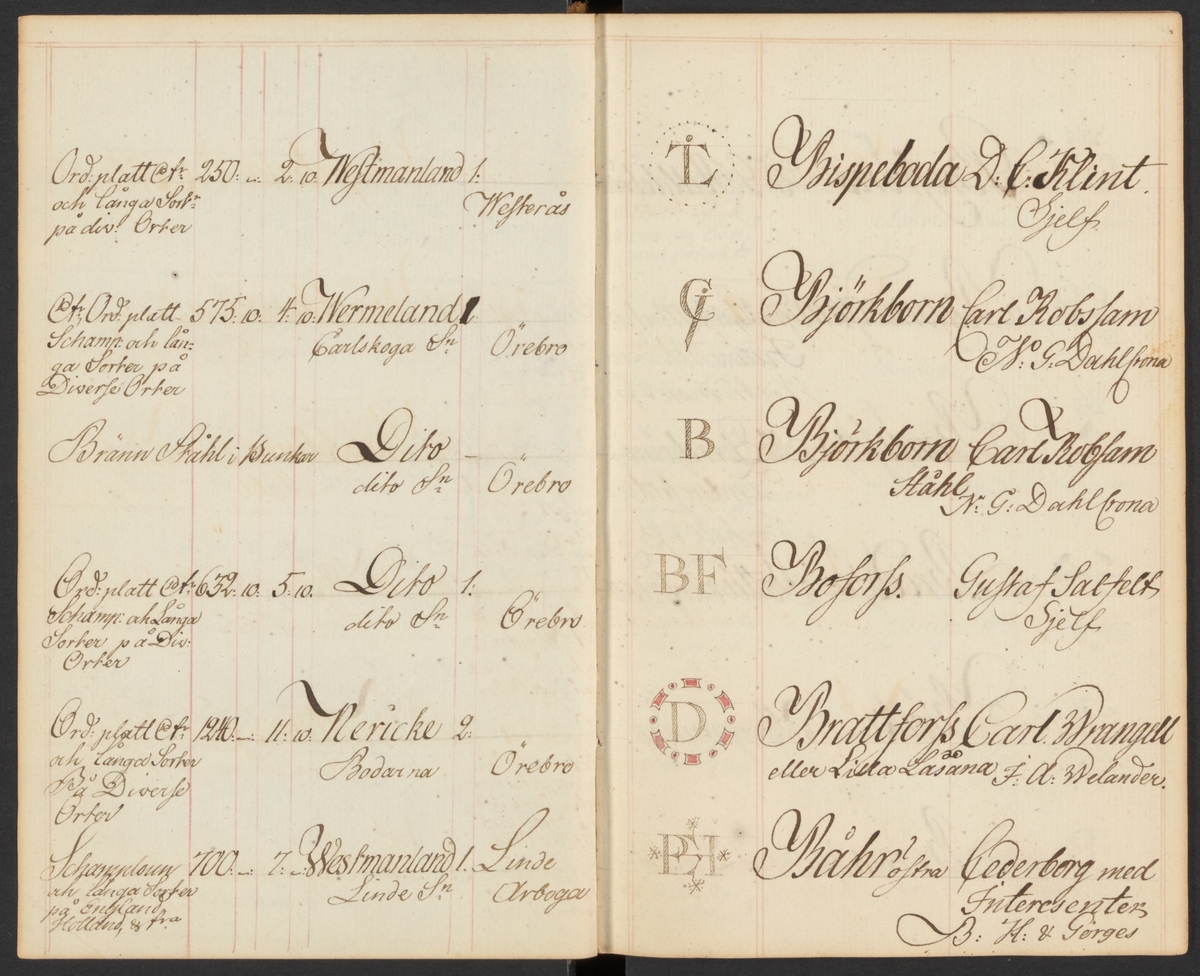 Ord: platt Str 250. „. 2. 10. Westmanland 1:
och långa Sortr Westerås
på div: Orter
Str Ord. platt 575. 10. 4. 10. Wermeland 1.
Schamp: och lån- Carlskoga Sn Örebro
ga Sorter på
Diverse Orter
Bränn Ståhl i Bunkar Dito –
dito Sn Örebro
Ord: platt Str 632. 10. 5. 10. Dito 1:
Schamp. och Långa dito Sn Örebro
Sorter på Div:
Orter
Ord: platt Str 1240. –. 11. 10. Nericke 2:
och långa Sorter Bodarna Örebro
På Diverse
Orter
700. –. 7. –. Westmanland 1. Linde
och långa Sorter Linde Sn Arboga
på England,
Holland, & fra
TL Bispeboda D: C: Klint.
Sjelf
G Björkborn Carl Robsam
N: G: Dahlcrona
B Björkborn Carl Robsam
Ståhl N: G: Dahlcrona
BF Boforss. Gustaf Salfelt
Sjelf
D Brattforss Carl. Wrangell
eller Lilla Laßåna F: A: Welander.
Båhr östra Cederborg med
Interesenter
B: H: & Görges